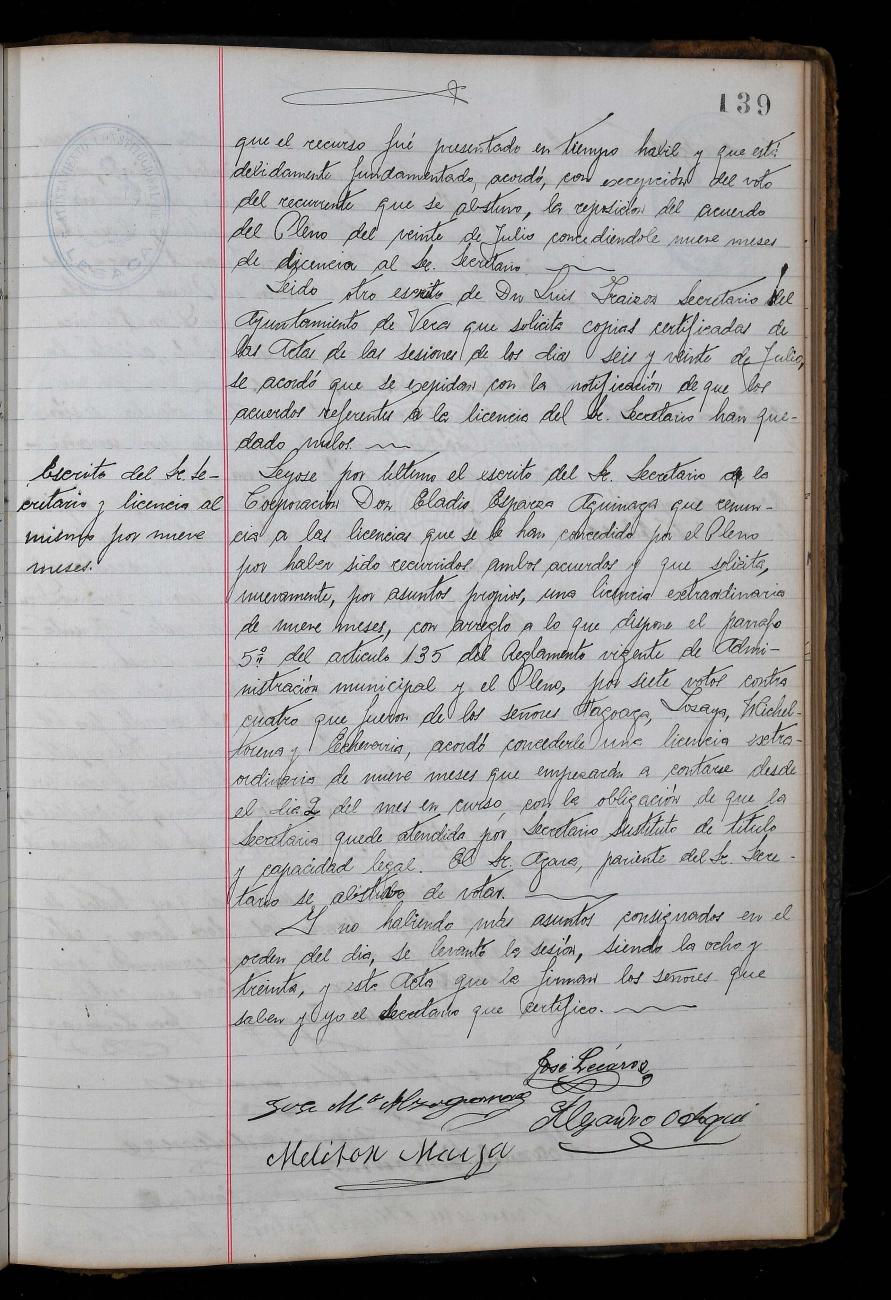 139
que el recurso fué presentado en tiempo habil y que está
debidamente fundamentado, acordó, con excepción del voto
del recurrente que se abstuvo, la reposición del acuerdo
del Pleno del veinte de Julio concediendole nueve meses
de licencia al Sr. Secretario
Leido otro escrito de Dn Luis Fraizoz Secretario del
Ayuntamiento de Vera que solicita copias certificadas de
las Actas de las sesiones de los dias seis y veinte de Julio,
se acordó que se expidan con la notificación de que los
acuerdos referentes a la licencia del Sr. Secretario han que-
dado nulos.
Escrito del Sr. Se-
cretario y licencia al
mismo por nueve
meses.
Leyose por último el escrito del Sr. Secretario de la
Corporación Don Eladio Esparza Aguinaga que renun-
cia a las licencias que se le han concedido por el Pleno
por haber sido recurridos ambos acuerdos y que solicita,
nuevamente, por asuntos propios, una licencia extraordinaria
de nueve meses, con arreglo a lo que dispone el parrafo
5º del articulo 135 del Reglamento vigente de Admi-
nistración municipal y el Pleno, por siete votos contra
cuatro que fueron de los señores Michel-
torena y Echeverria, acordó concederle una licencia extra-
ordinaria de nueve meses que empezarán a contarse desde
el dia 2 del mes en curso, con la obligación de que la
Secretaria quede atendida por Secretario Sustituto de titulo
y capacidad legal. El Sr. pariente del Sr. Secre-
tario se abstubo de votar.
Y no habiendo más asuntos consignados en el
orden del dia, se levantó la sesión, siendo la ocho y
treinta, y esta Acta que la firman los señores que
saben y yo el Secretario que certifico.
José
José Mª
Meliton
LESACA